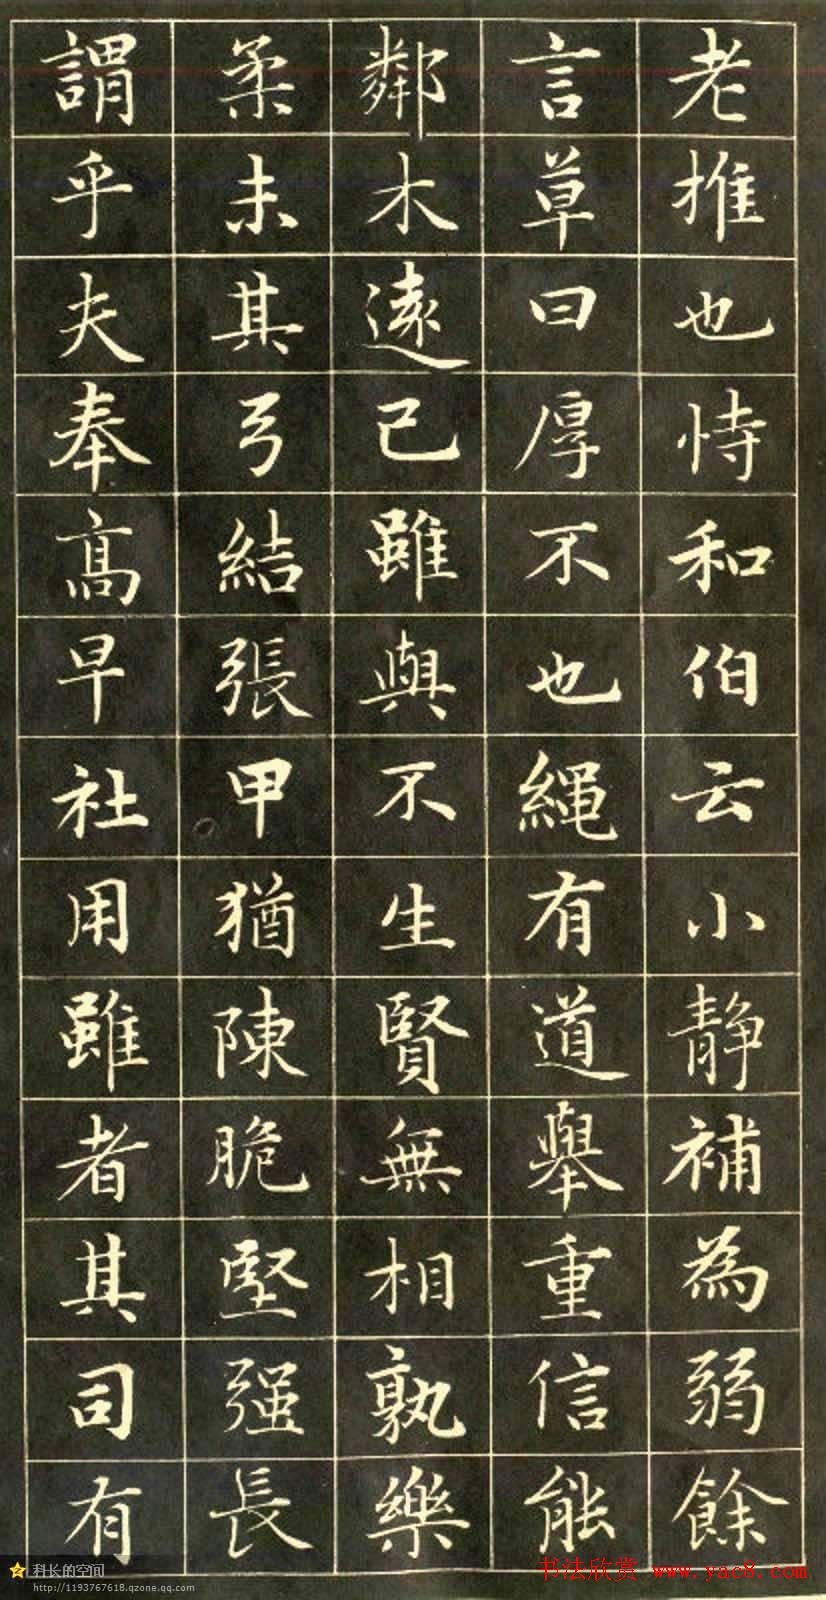 老推也恃和伯云小静補為弱餘
言草曰厚不也繩有道舉重信能
鄰木遠已雖與不生賢無相孰樂
柔未其弓結張甲猶陳脆堅强長
謂乎夫奉髙早社用雖者其司有
科长的空间
http://1193767618.qzone.qq.com
书法欣赏 www.yac8.com